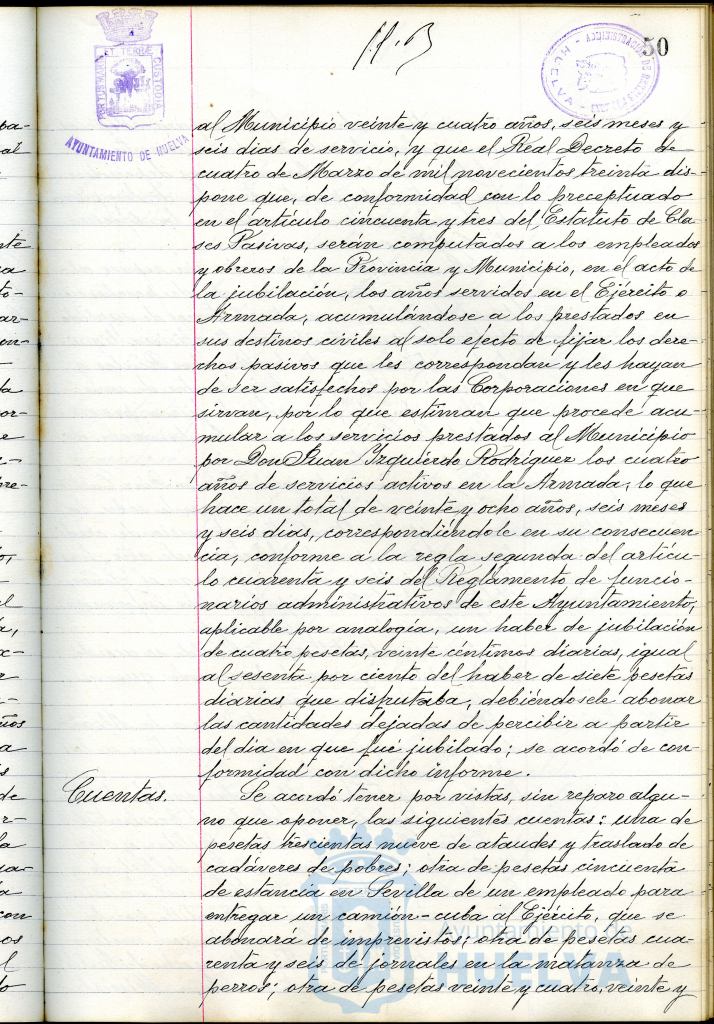 50
PORTUS MARIS ET TERRÆ CUSTODIA
AYUNTAMIENTO DE HUELVA
HUELVA
al Municipio veinte y cuatro años, seis meses y
seis dias de servicio, y que el Real Decreto de
cuatro de Marzo de mil novecientos treinta dis-
pone que, de conformidad con lo preceptuado
en el artículo cincuenta y tres del Estatuto de Cla
ses Pasivas, serán computados a los empleados
y obreros de la Provincia y Municipio, en el acto de
la jubilación, los años servidos en el Ejército o
Armada, acumulándose a los prestados en
sus destinos civiles al solo efecto de fijar los dere-
chos pasivos que les correspondan y les hayan
de ser satisfechos por las Corporaciones en que
sirvan, por lo que estiman que procede acu-
mular a los servicios prestados al Municipio
por Don Juan Yzquierdo Rodríguez los cuatro
años de servicios activos en la Armada, lo que
hace un total de veinte y ocho años, seis meses
y seis dias, correspondiéndole en su consecuen
cia, conforme a la regla segunda del artícu-
lo cuarenta y seis del Reglamento de funcio-
narios administrativos de este Ayuntamiento,
aplicable por analogía, un haber de jubilación
de cuatro pesetas, veinte centimos diarias, igual
al sesenta por ciento del haber de siete pesetas
diarias que disfrutaba, debiéndosele abonar
las cantidades dejadas de percibir a partir
del dia en que fué jubilado; se acordó de con-
formidad con dicho informe.
Cuentas.
Se acordó tener por vistas, sin reparo algu-
no que oponer, las siguientes cuentas: una de
pesetas trescientas nueve de ataudes y traslado de
cadáveres de pobres; otra de pesetas cincuenta
de estancia en Sevilla de un empleado para
entregar un camión-cuba al Ejército, que se
abonará de imprevistos; otra de pesetas cua-
renta y seis de jornales en la matanza de
perros; otra de pesetas veinte y cuatro, veinte y
Ayuntamiento de
HUELVA